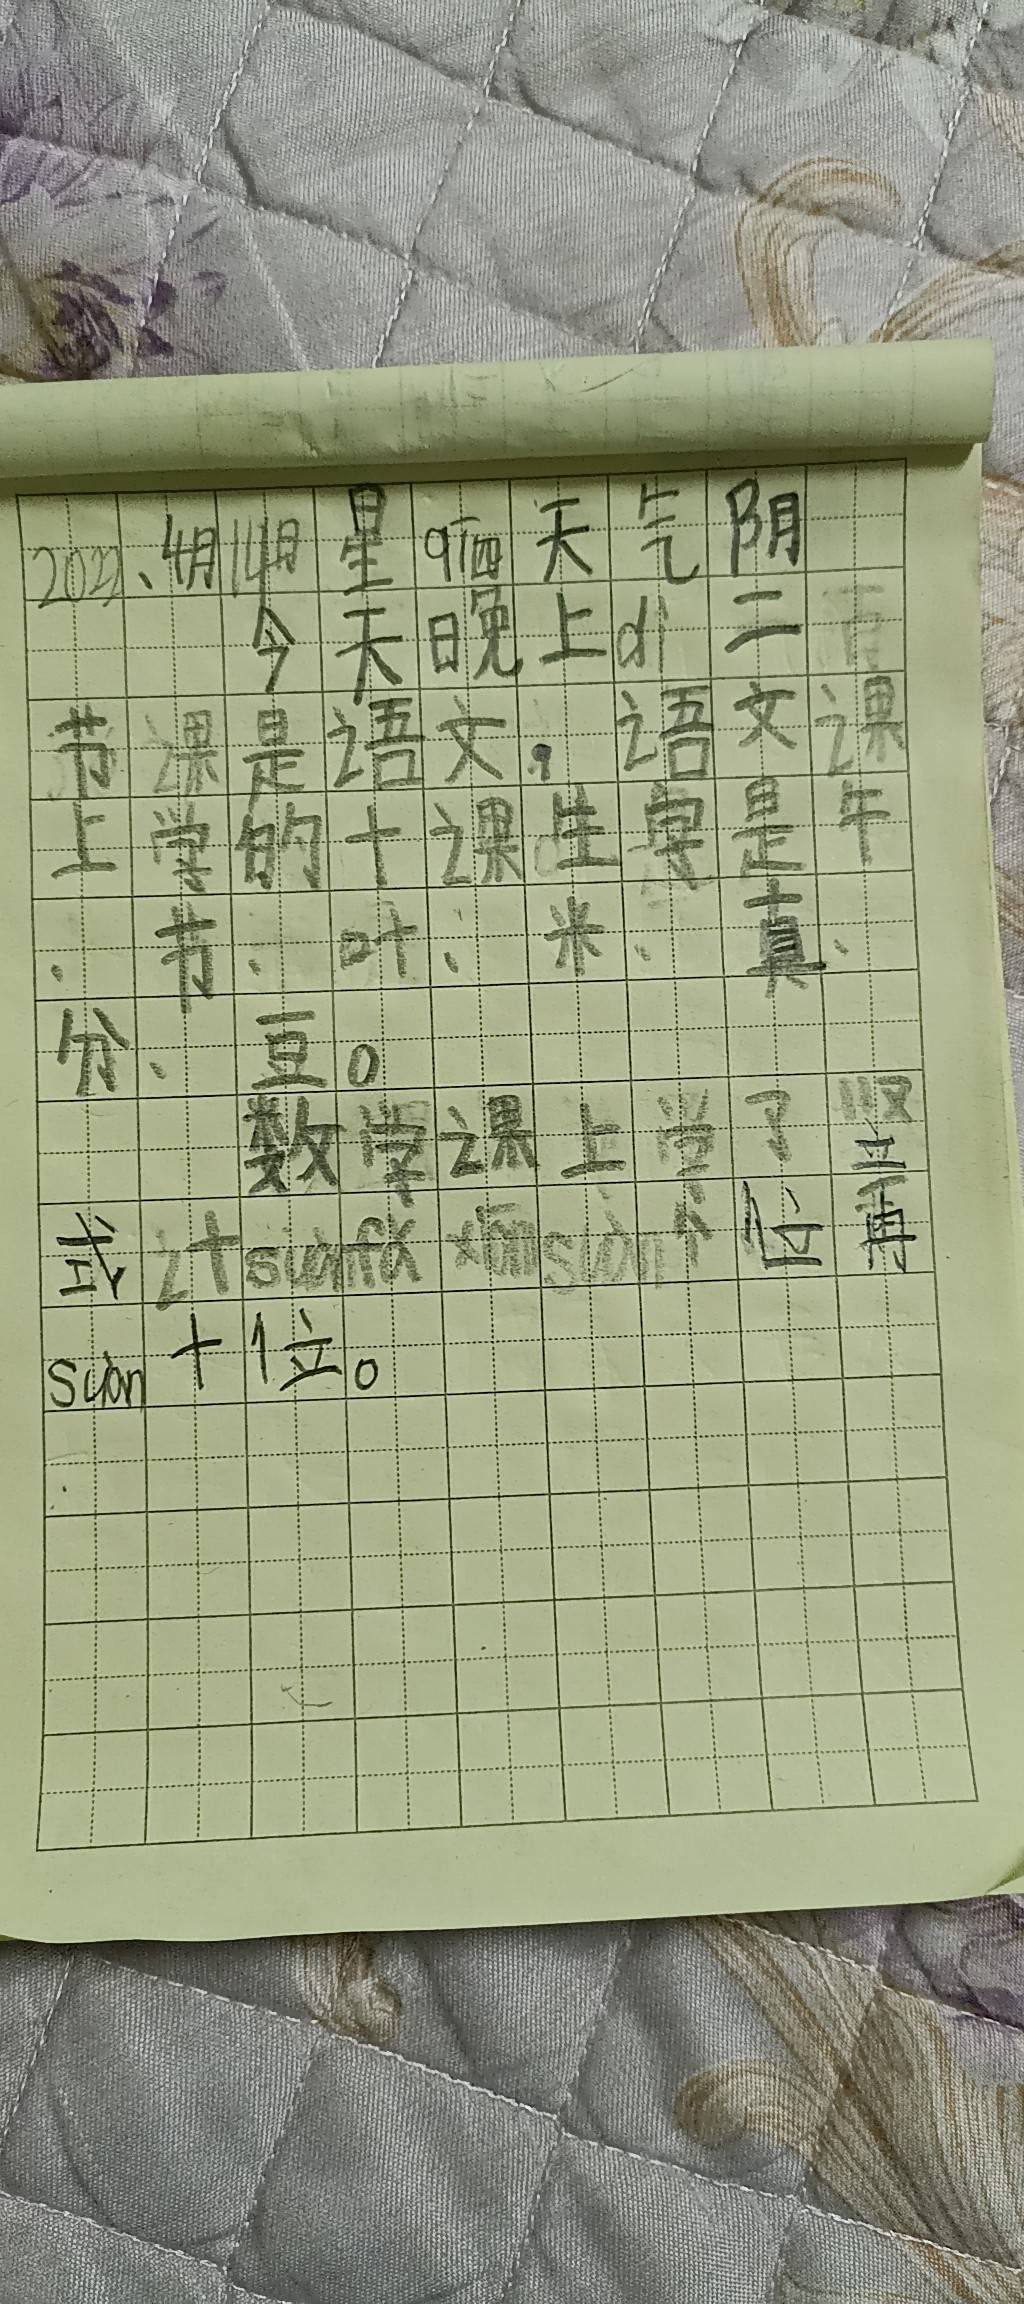 2022、4月14日 星qī四 天气 阴
今天晚上dì二
节课是语文。语文课
上学的十课生字是牛
、节、叶、米、真、
分、豆。
数学课上学了竖
式计suàn fǎ xiān suàn 个位再
suàn 十1立。